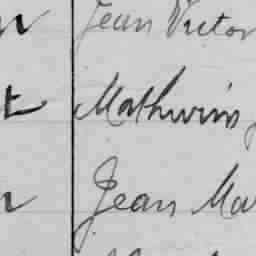 Jean Victor
Mathurin
Jean Ma